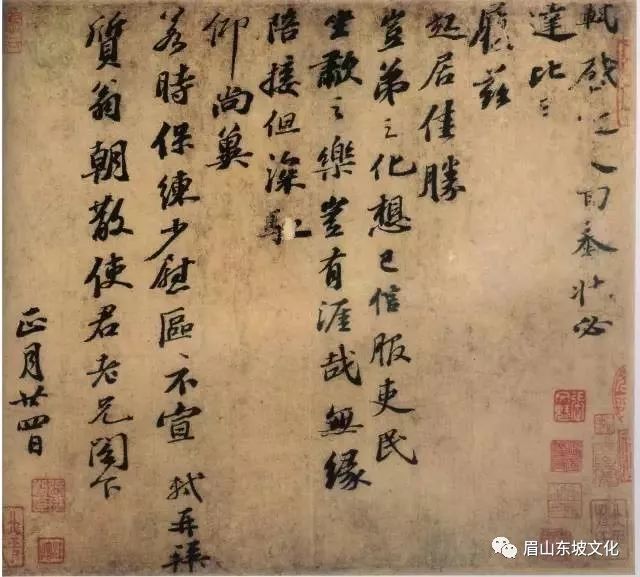 軾啓近人回奉狀必
達比
履茲
起居佳勝
豈弟之化想已信服吏民
坐歗之樂豈有涯哉無緣
陪接但深馳
仰尚冀
若時保練少慰區〻不宣 軾再拜
質翁朝散使君老兄閤下
正月廿四日
眉山东坡文化